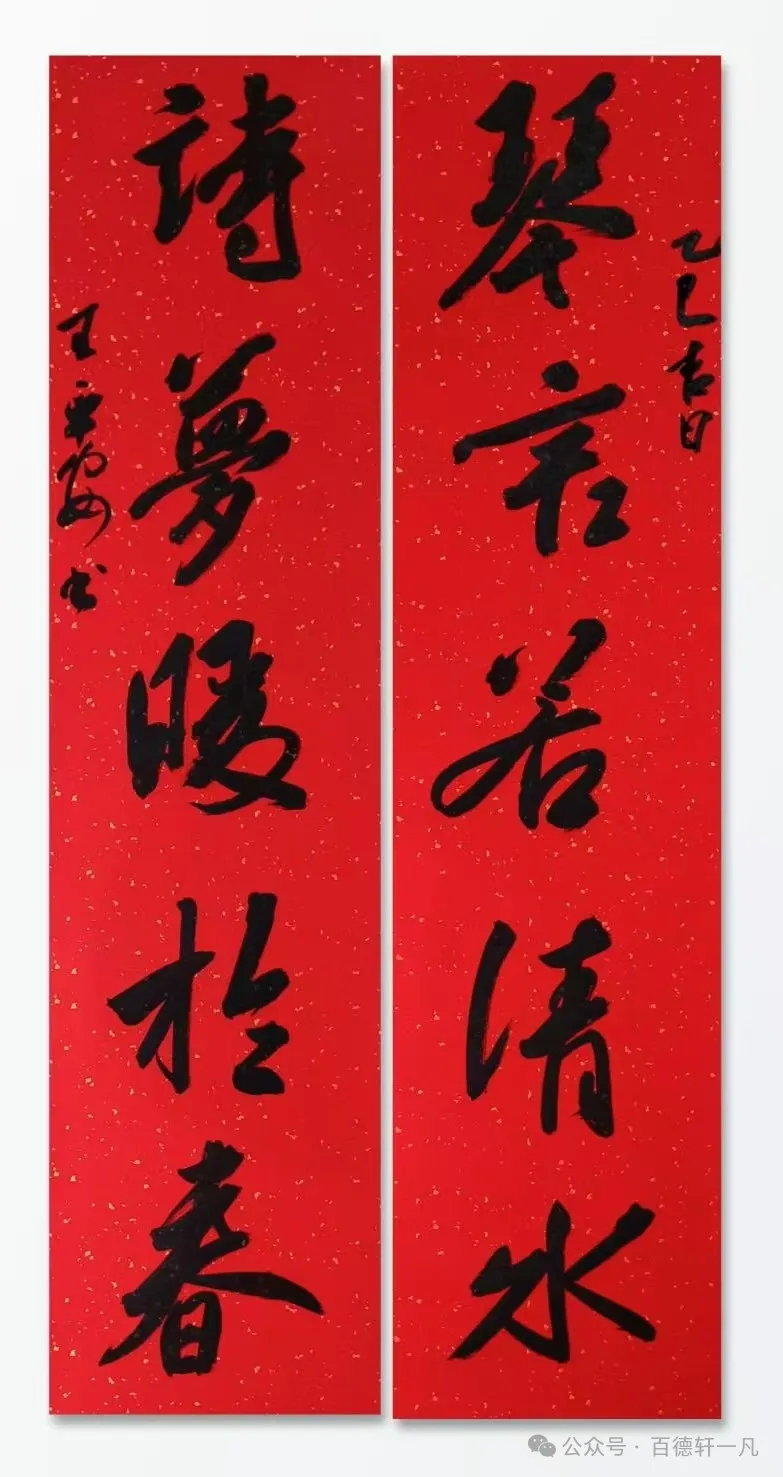 乙巳吉日
琴言若清水
詩夢暖於春
王书
公众号 · 百德轩一凡